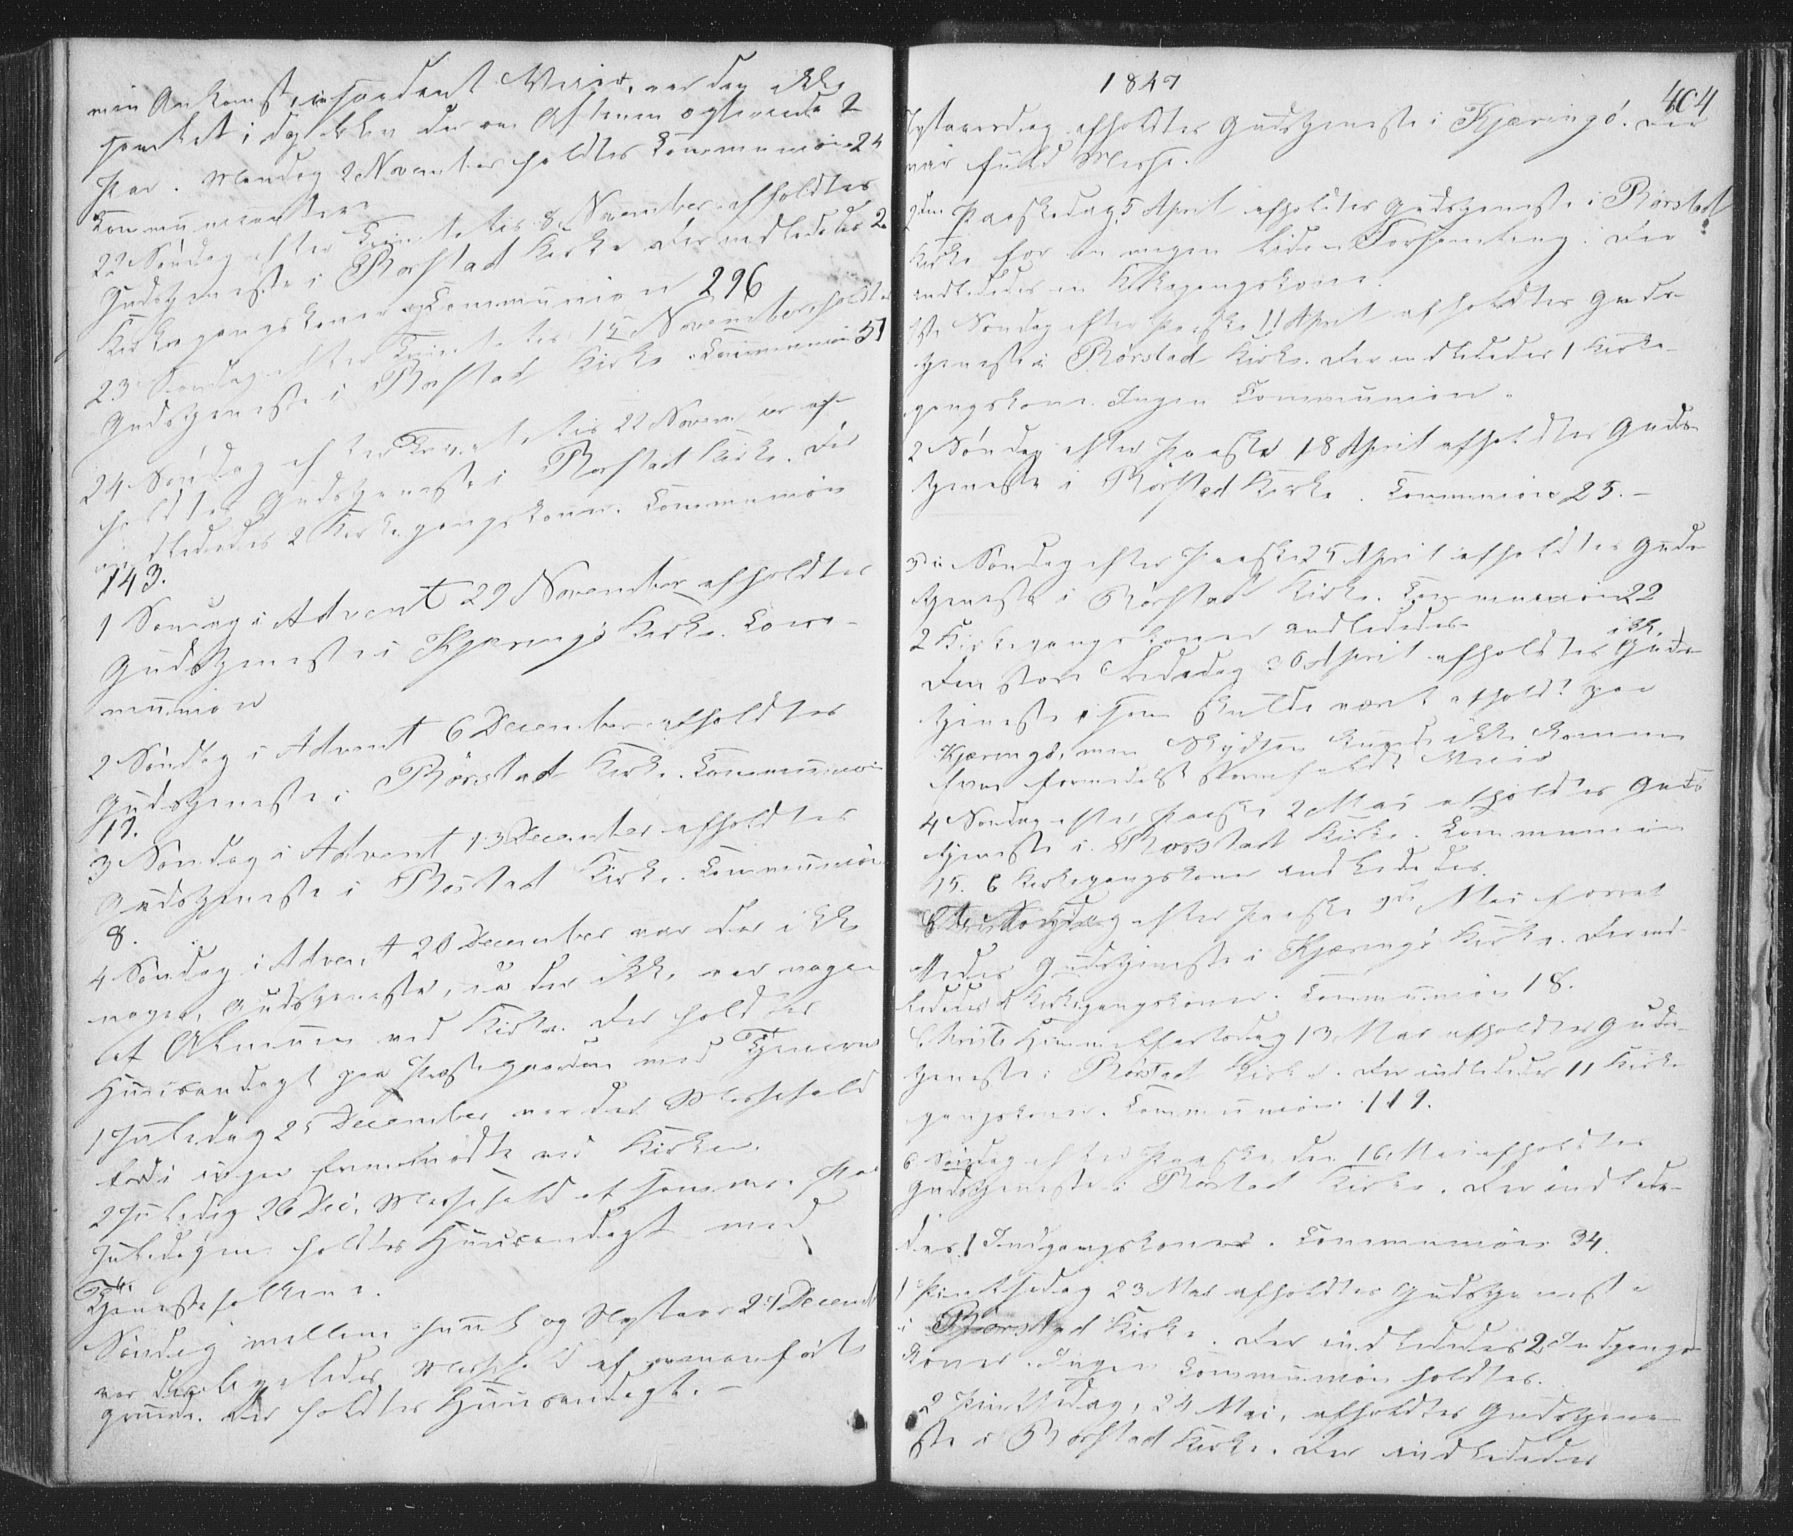 min Ankomst, ondt Veir, var der ikke
i Dag der om Aftenen 2
Par. Mandag 2 November holdtes Communion 24
Communicanter
22 Søndag efter Trinitatis 8 November afholdtes
Gudstjeneste i Rørstad Kirke. Der indlededes 2
Kirkegangskoner. Communion 296
23 Søndag efter Trinitatis 15 November holdtes
Gudstjeneste i Rørstad Kirke. Communion 51
24 Søndag efter Trinitatis 22 November af-
holdtes Gudstjeneste i Rørstad Kirke. Der
indlededes 2 Kirkegangskoner. Communion
143.
1 Søndag i Advent 29 November afholdtes
Gudstjeneste i Kjæringø Kirke. Com-
munion
2 Søndag i Advent 6 December afholdtes
Gudstjeneste i Rørstad Kirke. Communion
19.
3 Søndag i Advent 13 December afholdtes
Gudstjeneste i Rørstad Kirke. Communion
8.
4 Søndag i Advent 20 December var der ikke
nogen Gudstjeneste, da der ikke var nogen
af Almuen ved Kirke. Der holdtes
Huusandagt paa Præstegaarden med Tjenerne
1 Juledag 25 December var der Messefald
fordi ingen fremmødte ved Kirken.
2 Juledag 26 Dec. Messefald af samme. Paa
Juledagene holdtes Huusandagt med
Tjenestefolkene.
Søndag mellem Juul og Nytaar 27 Decemb
var der ligeledes Messefald af ovenanførte
grunde. Der holdtes Huusandagt. -
1847
404
afholdtes Gudstjeneste i Kjæringø. Der
var fuld Messe.
2den Paaskedag 5 April afholdtes Gudstjeneste i Rørstad
Kirke for en meget liden Forsamling. Der
indlededes en Kirkegangskone.
1ste Søndag efter Paaske 11 April afholdtes Guds-
tjeneste i Rørstad Kirke. Der indlededes 1 Kirke-
gangskone. Ingen Communion.
2 Søndag efter Paaske 18 April afholdtes Guds-
tjeneste i Rørstad Kirke. Communion 25. -
3die Søndag efter Paaske 25 April afholdtes Guds-
tjeneste i Rørstad Kirke. Communion 22
2 Kirkegangskoner indlededes
Den store Bededag 30 April afholdtes ikke Guds-
tjeneste som skulde være afholdt paa
Kjæringø, men Skydsen kunde ikke komme
frem formedelst Veir
4 Søndag efter Paaske 2 Mai afholdtes Guds-
tjeneste i Rørstad Kirke. Communion
15. 6 Kirkegangskoner indlededes.
Søndag efter Paaske 9de Mai forret-
tedes Gudstjeneste i Kjæringø Kirke. Der ind-
lededes Kirkegangskoner. Communion 18.
Christi Himmelfartsdag 13 Mai afholdtes Guds-
tjeneste i Rørstad Kirke. Der indlededes 11 Kirke-
gangskoner. Communion 119.
6 Søndag efter Paaske den 16 Mai afholdtes
Gudstjeneste i Rørstad Kirke. Der indlede-
des 1 Indgangskone. Communion 34.
1 Pintsedag 23 Mai afholdtes Gudstjeneste
i Rørstad Kirke. Der indlededes 2 Indgangs-
koner. Ingen Communion holdtes.
2 Pintsedag, 24 Mai, afholdtes Gudstjene-
ste i Rørstad Kirke. Der indlededes